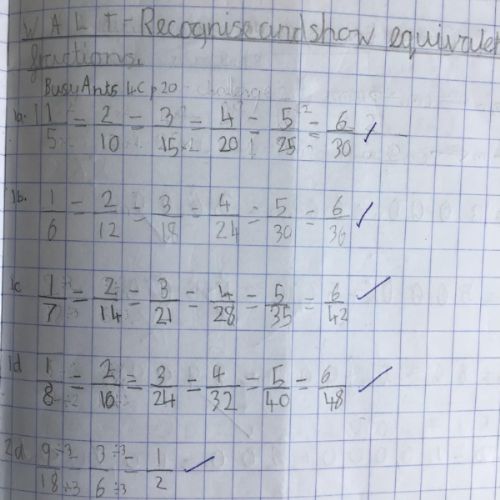 WALT- Recognise and show equivalen
fractions.
Busy Ants 4C p20 - challenge 2
1a. 1/5 = 2/10 = 3/15 = 4/20 = 5/25 = 6/30 ✓
1b. 1/6 = 2/12 = 3/18 = 4/24 = 5/30 = 6/36 ✓
1c 1/7 = 2/14 = 3/21 = 4/28 = 5/35 = 6/42 ✓
1d 1/8 = 2/16 = 3/24 = 4/32 = 5/40 = 6/48 ✓
2d 9÷3/18÷3 = 3÷3/6÷3 = 1/2 ✓